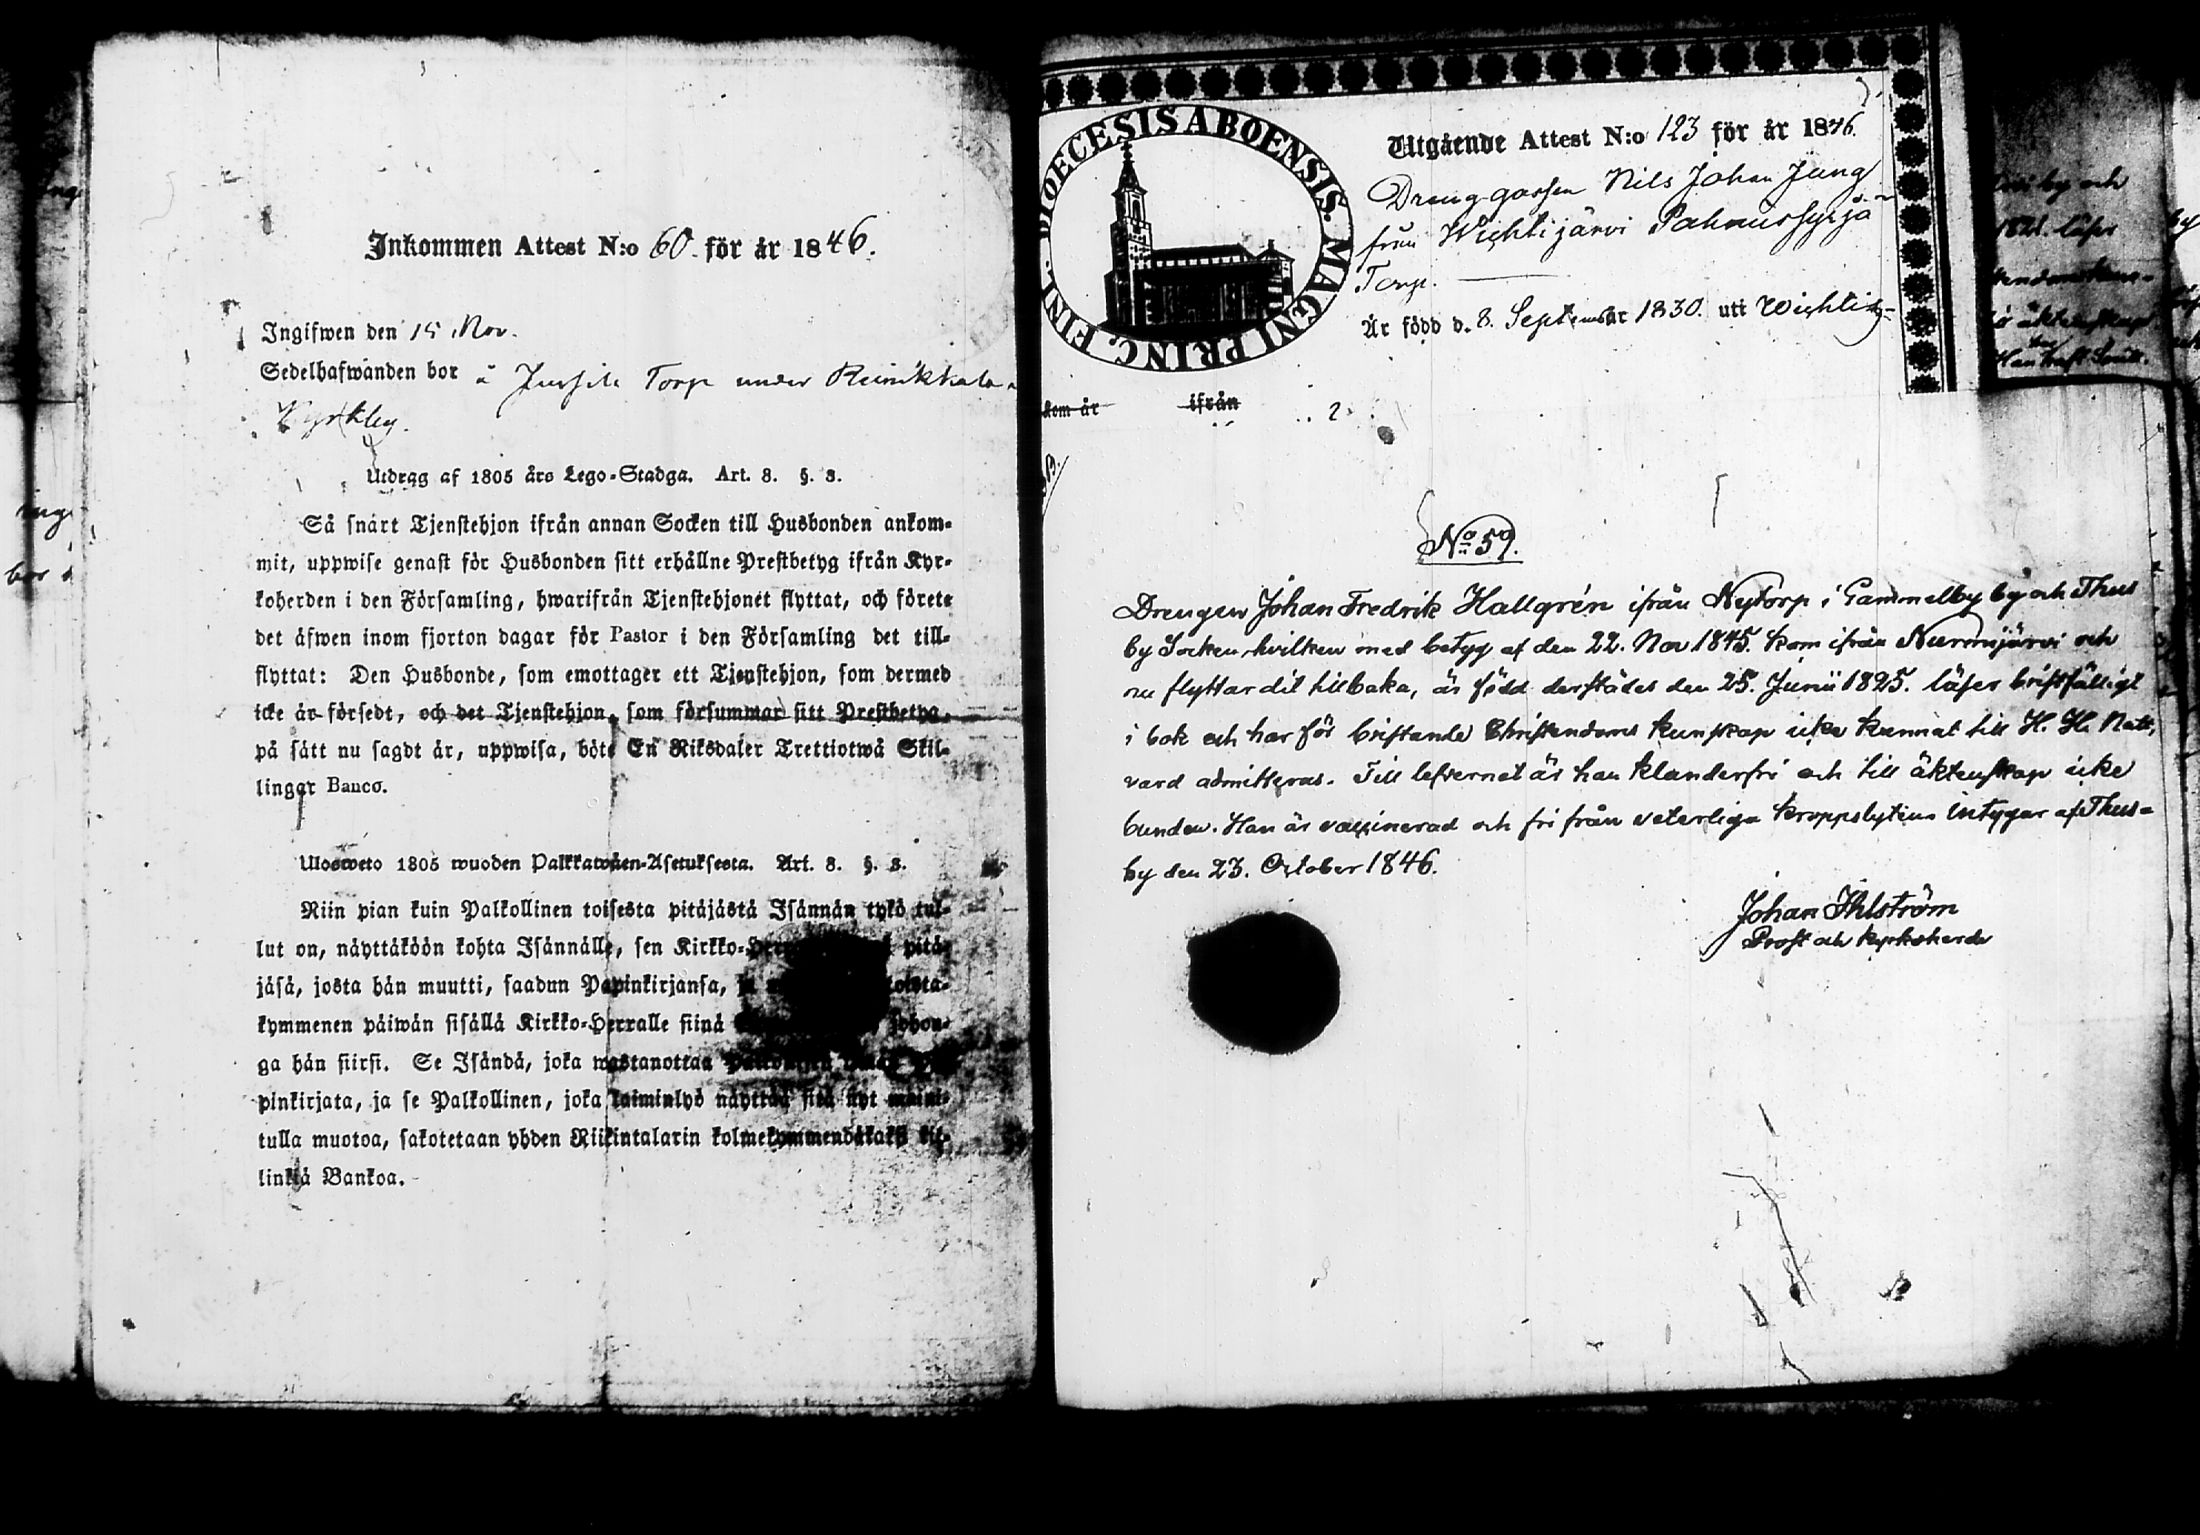 Inkommen Attest N:o 60. för år 1846.
Ingifwen den 15 Nov.
Sedelhafwanden bor å Torp under
Kyrkby.
Utdrag af 1805 års Lego-Stadga. Art. 8. §. 3.
Så snart Tjenstehjon ifrån annan Socken till Husbonden ankom-
mit, uppwise genast för Husbonden sitt erhållne Prestbetyg ifrån Kyr-
koherden i den Församling, hwarifrån Tjenstehjonet flyttat, och förete
det äfwen inom fjorton dagar för Pastor i den Församling det till-
flyttat: Den Husbonde, som emottager ett Tjenstehjon, som dermed
icke är försedt, och det Tjenstehjon, som försummar sitt Prestbetyg,
på sätt nu sagdt är, uppwisa, böte En Riksdaler Trettiotwå Skil-
lingar Banco.
Ulosweto 1805 wuoden Palkkawäen-Asetuksesta. Art. 8. §. 3.
Niin pian kuin Palkollinen toisesta pitäjästä Isännän tykö tul-
lut on, näyttäköön kohta Isännälle, sen Kirkko- pitä-
jäsä, josta hän muutti, saadun Papinkirjansa, ja
kymmenen päiwän sisällä Kirkko-Herralle siinä johon-
ga hän siirsi. Se Isändä, joka wastanottaa
pinkirjata, ja se Palkollinen, joka laiminlyö näyttää sitä nyt maini-
tulla muotoa, sakotetaan yhden Riikintalarin kolmekymmendäkaksi kil-
linkiä Bankoa.
DIOECESIS ABOENSIS. MAGNI PRINC. FINL.
Utgående Attest N:o 123 för år 1846.
Dreng gossen Nils Johan Jung
från Wichtijärvi
Torp.
Är född d. 8. September 1830. uti Wichtis
kom år ifrån
No 59.
Drengen Johan Fredrik Hallgrén ifrån Nytorp i Gammelby by och Thus
by Socken, hvilken med betyg af den 22. Nov 1845. kom ifrån Nurmijärvi och
nu flyttar dit tilbaka, är född derstädes den 25. Junii 1825. läser bristfälligt
i bok och har för bristande Christendoms kunskap icke kunnat till H. H. Natt,
vard admitteras. Till lefvernet är han klanderfri och till äktenskap icke
bunden. Han är vaccinerad och fri från veterliga kroppslyten intygar af Thus=
by den 23. October 1846.
Johan Ahlström
Prost och Kyrkoherde